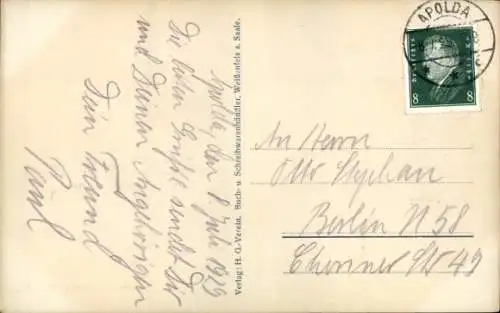 Apolda, den 8. Juli 1929
Die besten Grüße sendet Dir
und Deinen Angehörigen
Dein Freund
Paul
Verlag: H. G.-Verein, Buch- u. Schreibwarenhändler, Weißenfels a. Saale.
APOLDA
DEUTSCHES REICH
8 8
An Herrn
Otto Stephan
Berlin N 58
Str 49